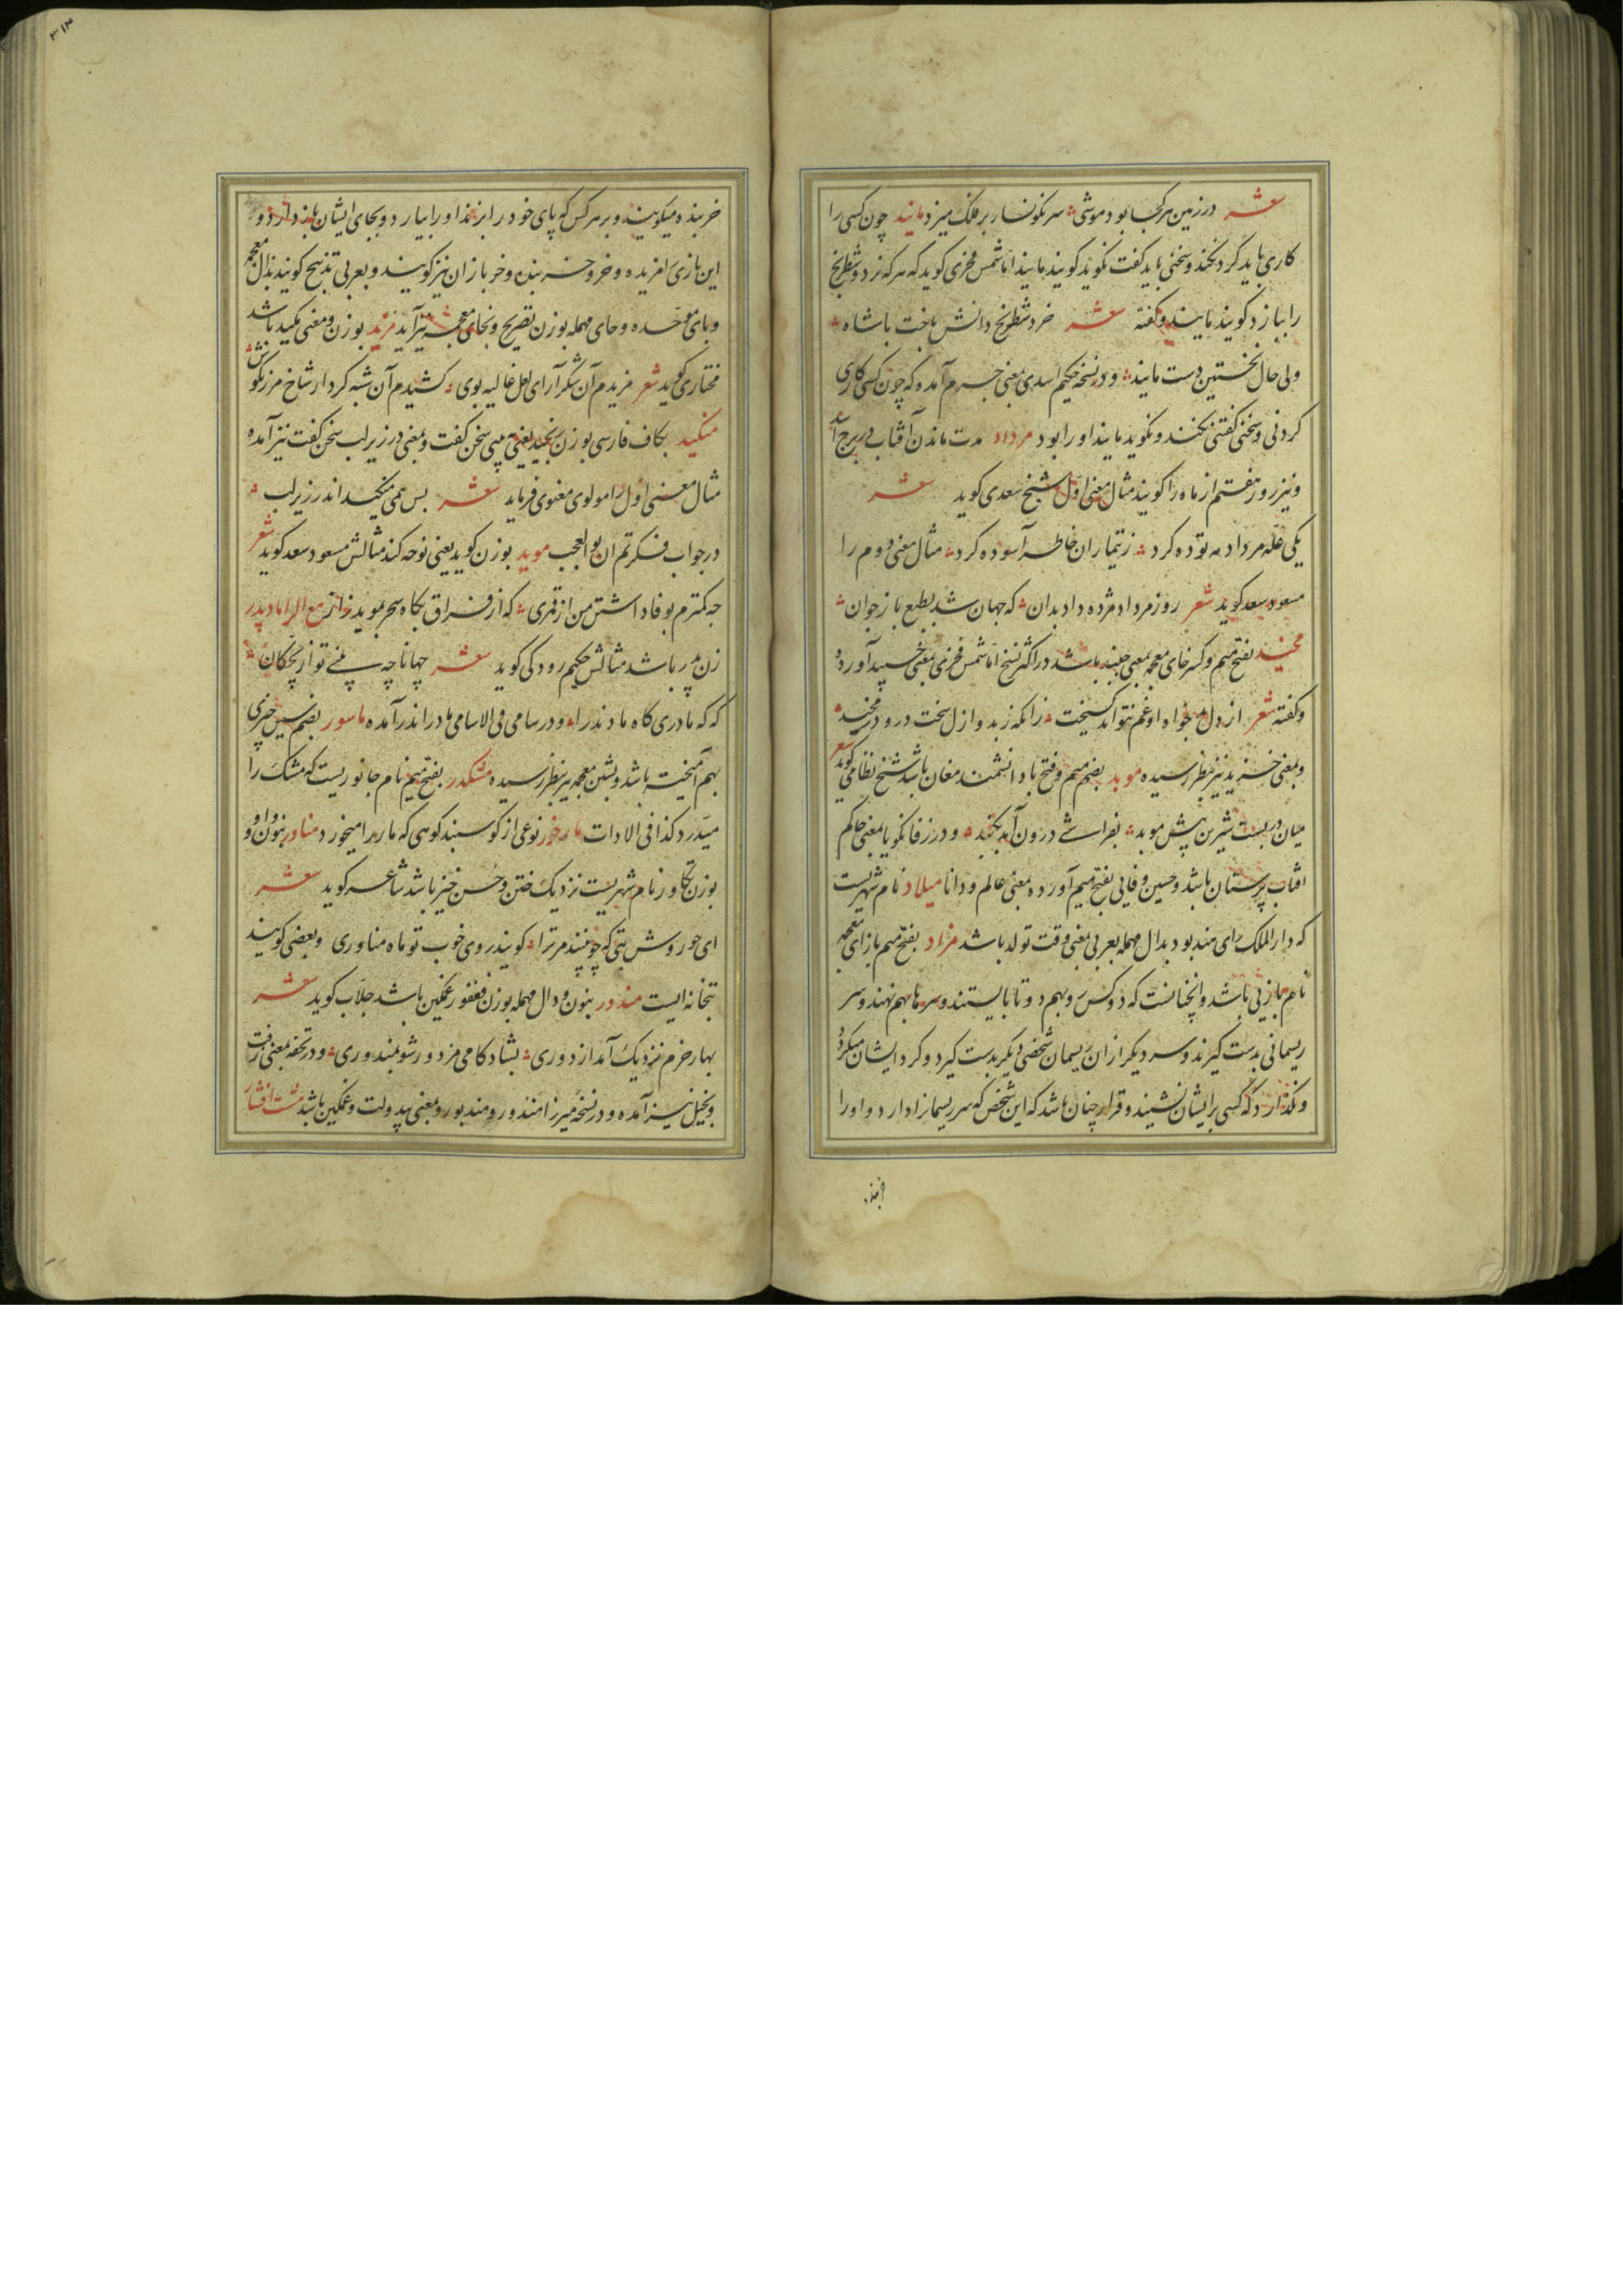 شعر در زمین هر کجا بود موشی سرنگونسار بر فلک میزد مانید چون کسی را
کاری باید کرد نکند و سخنی باید گفت نگوید گویند مانید اما شمس فخری گوید که هر که نرد و شطرنج
را ببازد گویند مانید و گفته شعر خرد شطرنج دانش باخت با شاه
ولی حال نخستین دست مانید و در نسخه حکیم اسدی بمعنی جرم آمده که چون کسی کاری
کردنی و سخنی گفتنی نکند و نگوید مانید او را بود مرداد مدت ماندن آفتاب در برج اسد
و نیز روز هفتم از ماه را گویند مثال معنی اول شیخ سعدی گوید شعر
یکی غله مرداد مه توده کرد ز تیمار آن خاطر آسوده کرد مثال معنی دوم را
مسعود سعد گوید شعر روز مرداد مژده داد بدان که جهان شد بطبع باز جوان
مخید بفتح میم و کسر خای معجمه بمعنی جنبید باشد در اکثر نسخ اما شمس فخری بمعنی خسپید آورده
و گفته شعر از دل بدخواه او غم نتواند گسیخت زانکه زبد و ازل سخت درو در مخید
و بمعنی خزید نیز بنظر رسیده موبد بضم میم و فتح با دانشمند مغان باشد شیخ نظامی گوید شعر
میان دربست شیرین پیش موبد بفراشی درون آمد بگنبد و در زفانگویا بمعنی حاکم
آفتاب پرستان باشد و حسین وفایی بفتح میم آورده بمعنی عالم و دانا میلاد نام شهریست
که دار الملک رای هند بود بدال مهمله بعربی بمعنی وقت تولد باشد مزاد بفتح میم بازای معجمه
نام بازیی باشد و آنچنانست که دو کس رو بهم دو تا بایستند و سرها بهم نهند و سر
ریسمانی بدست گیرند و سر دیگر از آن ریسمان شخصی دیگر بدست گیرد و گرد ایشان میگردد
و نگذارد که کسی بر ایشان نشیند و قرار چنان باشد که این شخص که سر ریسمان را دارد و او را
خربنده
خربنده میگویند و بر هر کس که پای خود را بزند او را بیارد و بجای ایشان باز دارد و
این بازی را مزیده و خر و خربنده و خر بازان نیز گویند و بعربی تذبیح گویند بذال معجمه
و بای موحده و حای مهمله بوزن تصریح و بخای معجمه نیز آید مزید بوزن و معنی مکید باشد
مختاری گوید شعر مزیدم آن شکر آرای لعل غالیه بوی کشیدم آن شبه کردار شاخ مرزنگوش
منکید بکاف فارسی بوزن سنجید یعنی پی سخن گفت و بمعنی در زیر لب سخن گفت نیز آمده
مثال معنی اول را مولوی معنوی فرماید شعر بس همی منکید اندر زیر لب
در جواب فکرتم آن بو العجب موید بوزن گوید یعنی نوحه کند مثالش مسعود سعد گوید شعر
چه کمترم بوفاداشتن من از قمری که از فراق بگاه سحر بموید زار مع الرا مادیدر
زن پدر باشد مثالش حکیم رودکی گوید شعر جهانا چه بینی تو از بچگان
که گه مادری گاه مادندرا و در سامی فی الاسامی مادر اندر آمده ماسور بضم سین چیزی
بهم آمیخته باشد و بشین معجمه نیز بنظر رسیده مشکدر بفتح میم نام جانوریست که مشک را
میدرد کذا فی الادات مار خور نوعی از گوسپند کوهی که مار را میخورد مناور بنون و واو
بوزن تکاور نام شهریست نزدیک ختن و حسن خیز باشد شاعر گوید شعر
ای حور وش بتی که چو بینند مر ترا گویند روی خوب تو ماه مناوری و بعضی گویند
بتخانه ایست مندور بنون و دال مهمله بوزن فغفور غمگین باشد جلاب گوید شعر
بهار خرم نزدیک آمد از دوری بشادکامی مزدور شو بمندوری و در تحفه بمعنی زفت
و بخیل نیز آمده و در نسخه میرزا مندور و مندبور و بمعنی بیدولت و غمگین باشد مشت افشار